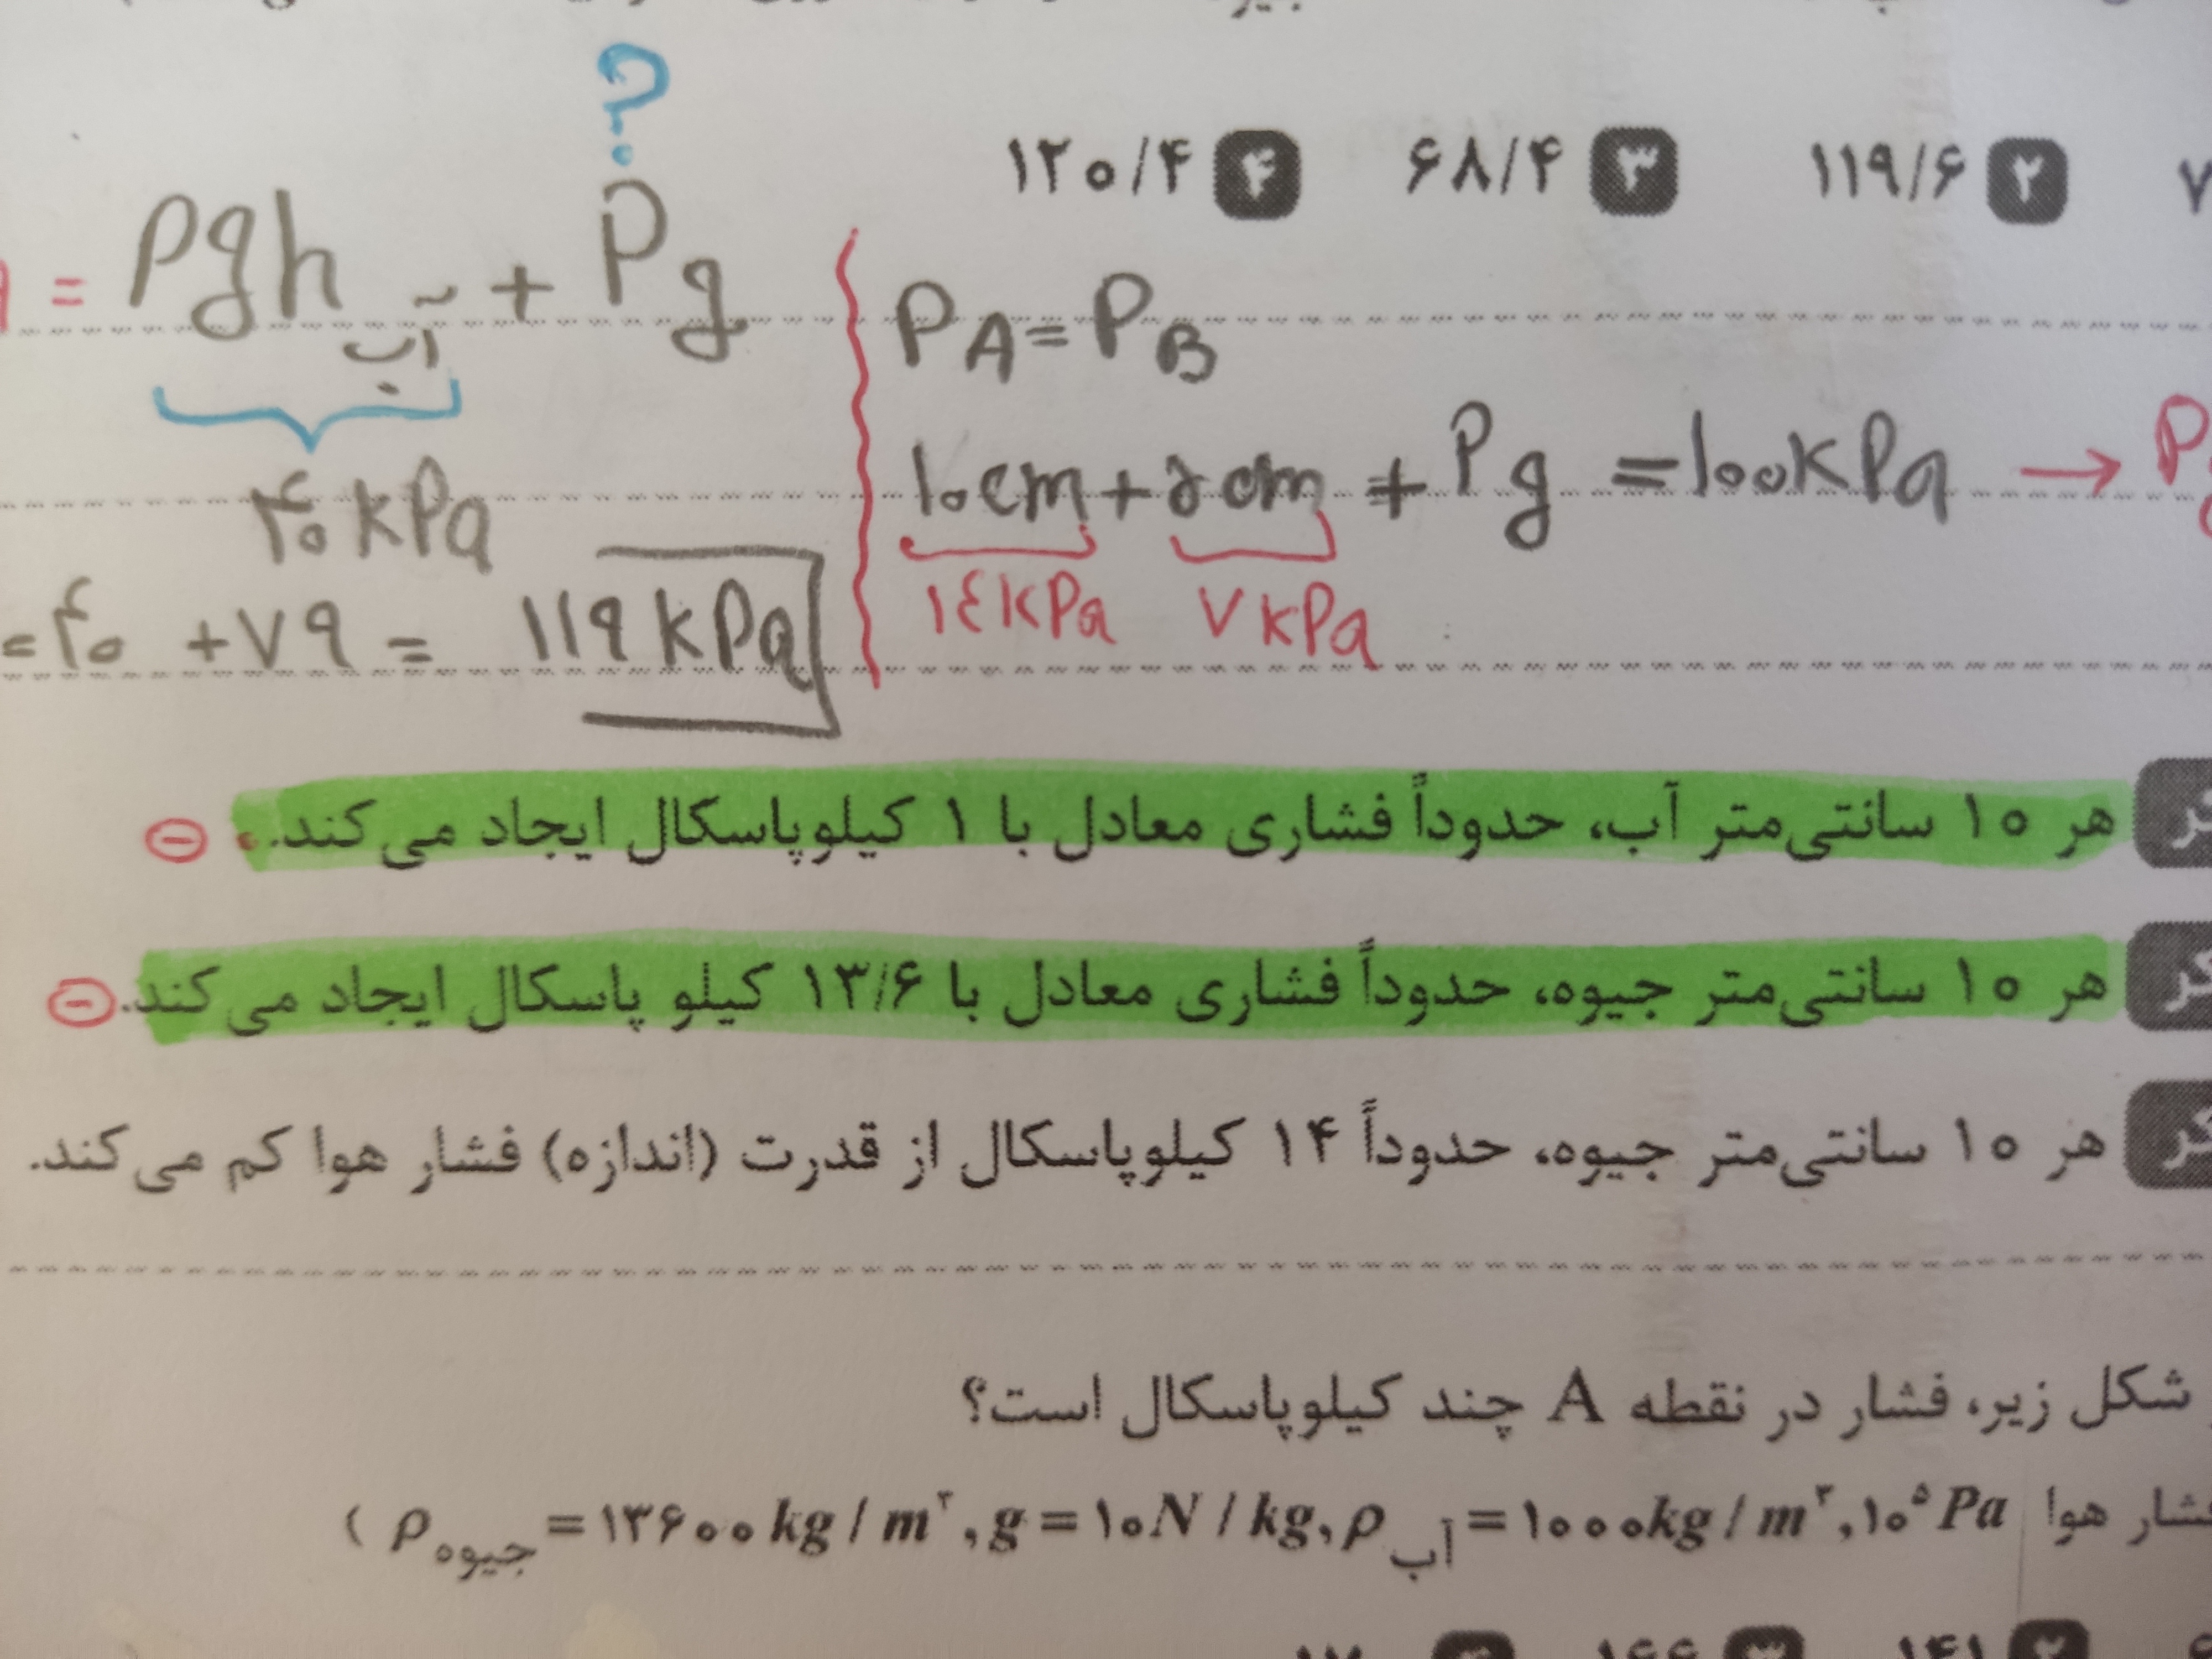 ۲ ۱۱۹/۶ ۳ ۶۸/۴ ۴ ۱۲۰/۴
?
= ρgh آب + Pg
۴۰ kPa
= ۴۰ + ۷۹ = ۱۱۹ kPa
PA = PB
۱۰cm + ۵cm + Pg = ۱۰۰kPa → P
۱٤kPa ۷kPa
هر ۱۰ سانتی‌متر آب، حدوداً فشاری معادل با ۱ کیلوپاسکال ایجاد می‌کند.
هر ۱۰ سانتی‌متر جیوه، حدوداً فشاری معادل با ۱۳/۶ کیلو پاسکال ایجاد می‌کند.
هر ۱۰ سانتی‌متر جیوه، حدوداً ۱۴ کیلوپاسکال از قدرت (اندازه) فشار هوا کم می‌کند.
شکل زیر، فشار در نقطه A چند کیلوپاسکال است؟
هوا ۱۰⁵ Pa, ρ آب = ۱۰۰۰kg/m³, g = ۱۰N/kg, ρ جیوه = ۱۳۶۰۰kg/m³ )